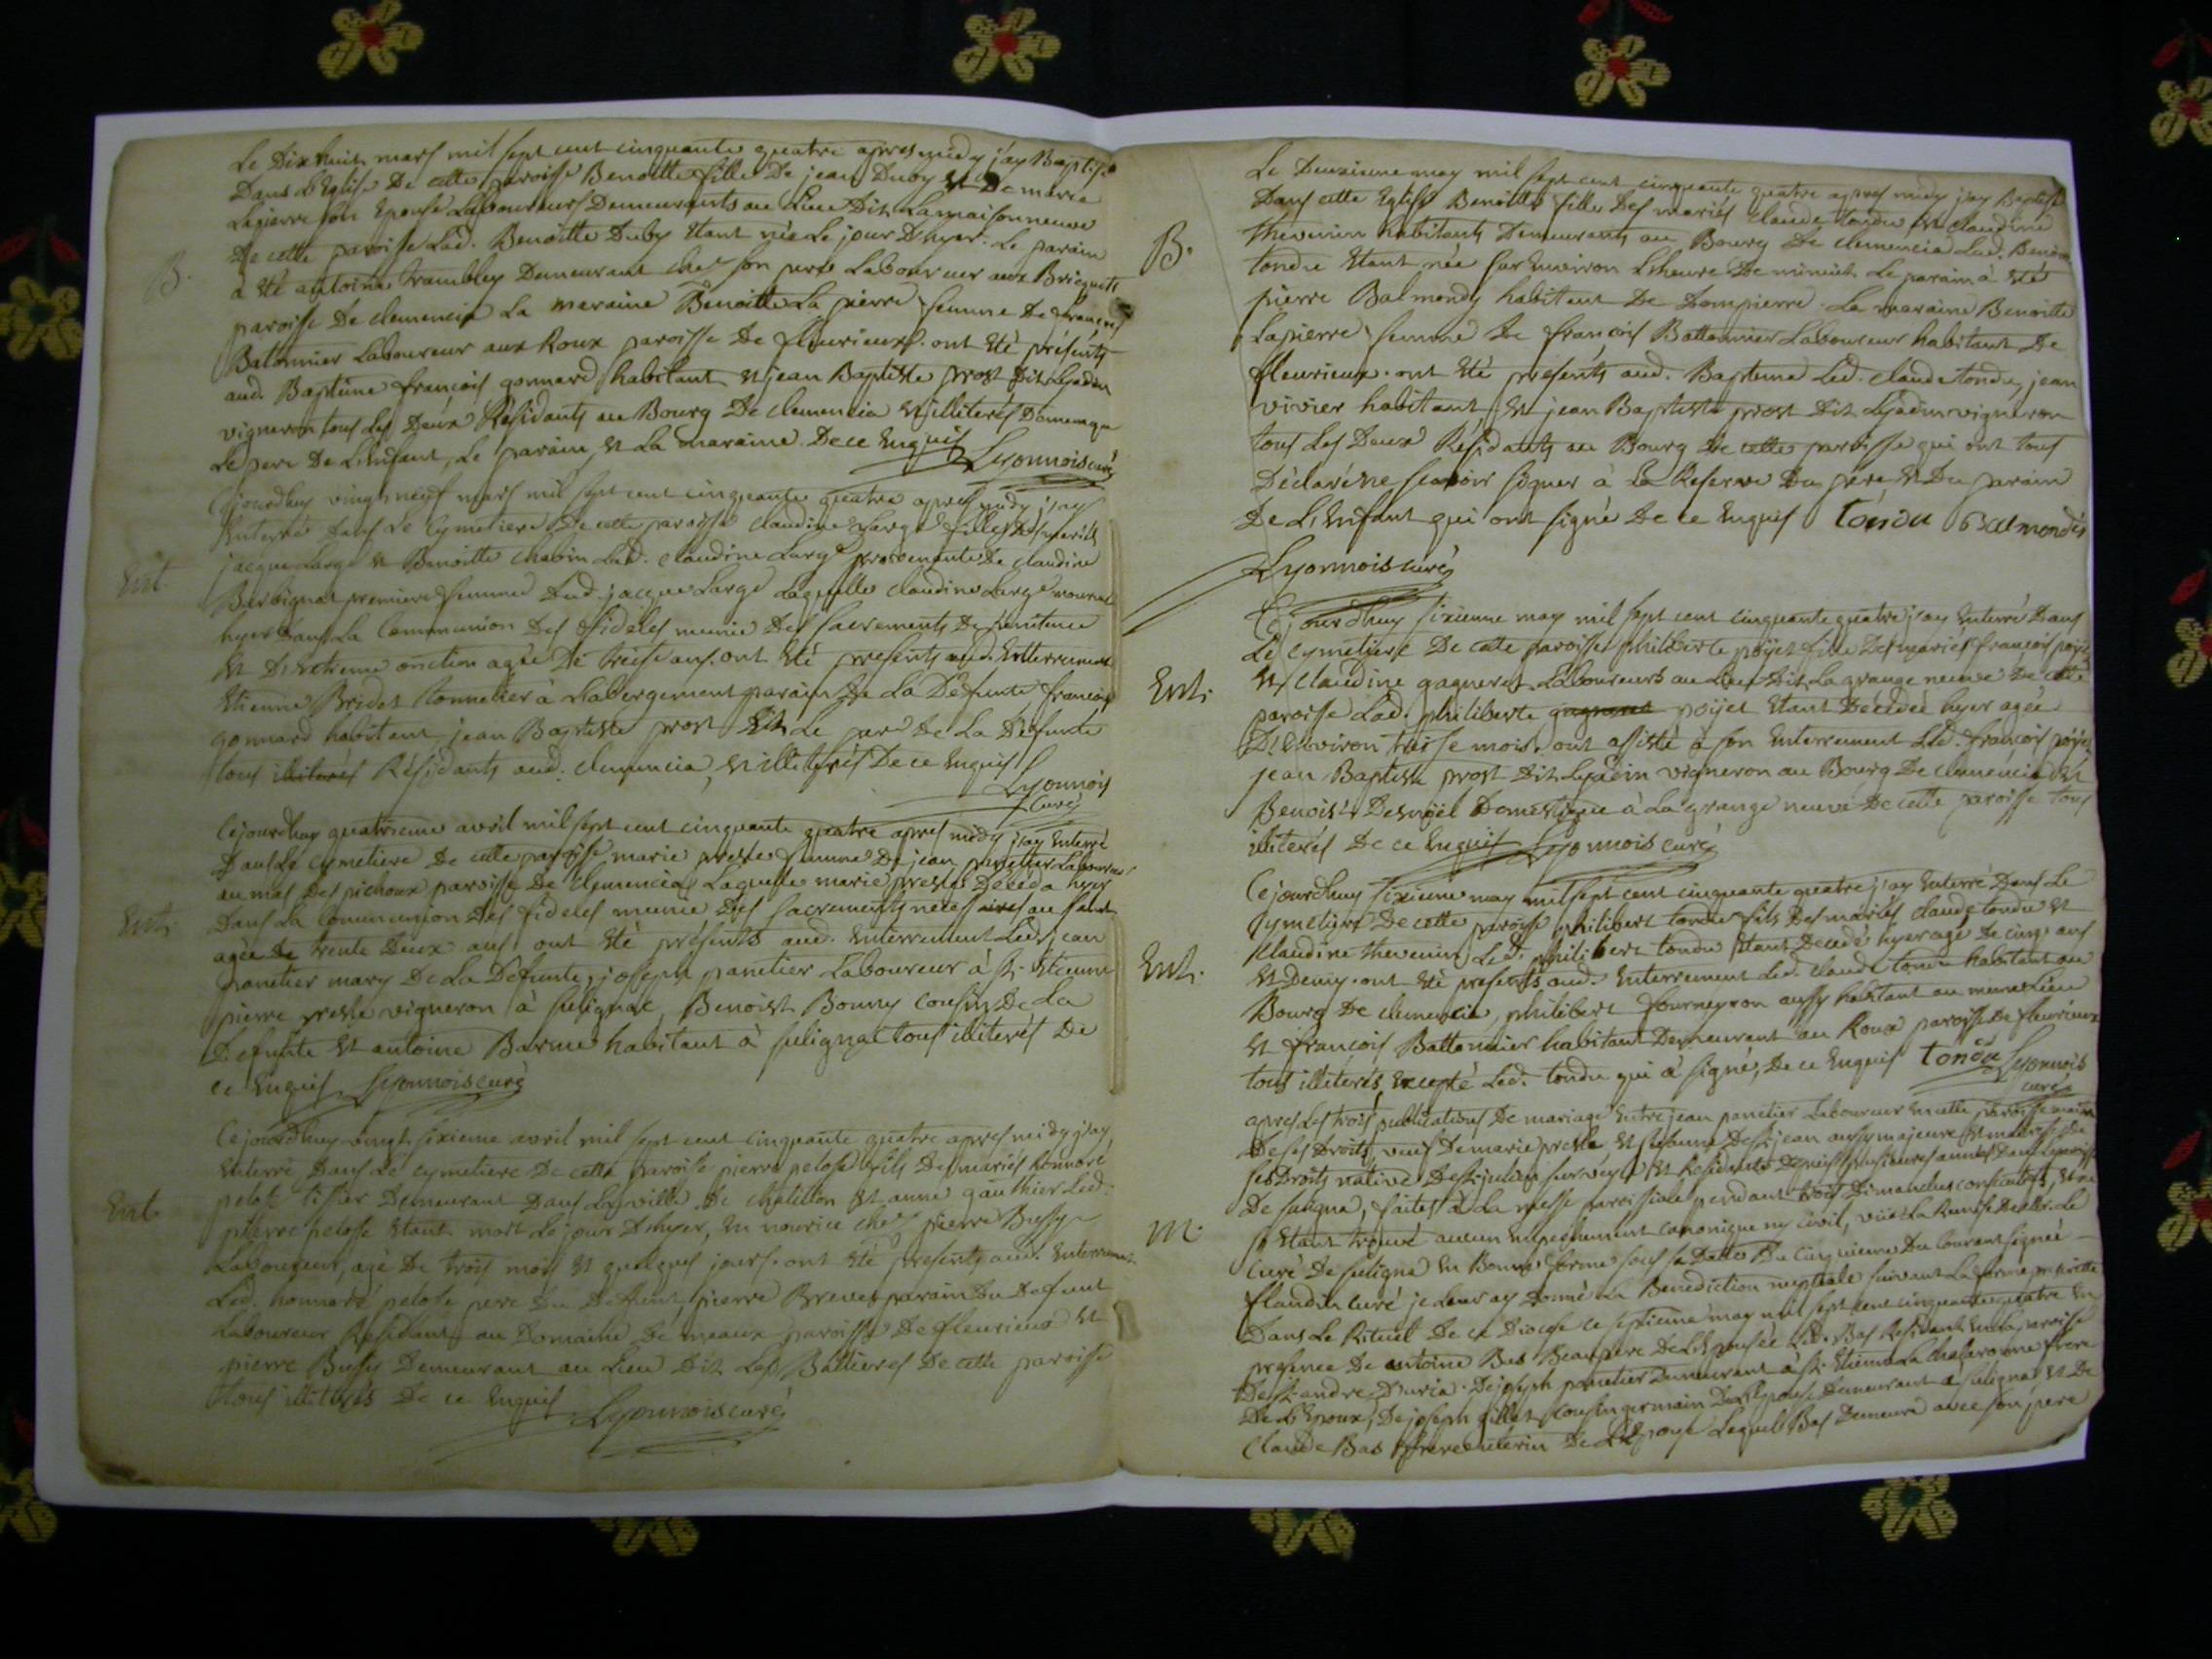 Le Dixhuit mars mil sept cent cinquante quatre apres midy j'ay Baptisé
Dans L'Eglise De cette paroisse Benoitte fille De jean Duby et De marie
Lapierre son Epouse Laboureurs Demeurants au Lieu Dit Lamaisonneuve
B. De cette paroisse Lad. Benoitte Duby Etant née Le jour D'hyer. Le parain
a Eté antoine Trambley Demeurant chez son pere Laboureur aux Bricquets
paroisse De clemencia La maraine Benoitte La pierre femme De francois
Batonnier Laboureur aux Roux paroisse De fleurieux. ont Eté présents
aud. Baptême francois gonnard habitant et jean Baptiste prost Dit
vigneron tous Les Deux Résidants au Bourg De clemencia et illiterés
Le pere De L'Enfant, Le parain, et La maraine. De ce Enquis Lyonnois curé
Cejourdhuy vingt neuf mars mil sept cent cinquante quatre apres midy j'ay
Enterré Dans Le Cymetiere De cette paroisse Claudine Large fille Des mariés
Ent. jacque Large et Benoitte chabin Lad. claudine Large provenante De claudine
Barbignat premiere femme Dud. jacque Large Laquelle claudine Large mourut
hyer Dans La Communion Des fideles munie Des Sacrements De penitence
et D'Extreme onction agée De treise ans. ont Eté presents aud. Enterrement
Etienne Bridet tonnelier à Labergement parain De La Défunte francois
gonnard habitant, jean Baptiste prost Dit Le De La Défunte
tous illiterés Résidants aud. clemencia, et illiterés De ce Enquis
Lyonnois
curé
Cejourdhuy quatrieme avril mil sept cent cinquante quatre apres midy j'ay Enterré
Dans Le Cymetiere De cette paroisse, marie presle femme De jean panetier Laboureur
au mas Des pichoux paroisse De Clemencia Laquelle marie presle Décéda hyer
Ent. Dans La Communion Des fideles munie Des Sacrements necessaires au Salut
agée De trente Deux ans ont Eté présents aud. Enterrement Led. jean
panetier mary De La Défunte, joseph panetier Laboureur à St. Etienne
pierre presle vigneron à Sulignat, Benoist Bonny cousin De La
Defunte et antoine Barme habitant à Sulignat tous illiterés De
ce Enquis Lyonnois curé
Cejourdhuy vingt sixieme avril mil sept cent cinquante quatre apres midy j'ay
Enterré Dans Le cymetiere De cette paroisse pierre pelose fils Des mariés honnoré
Ent. pelose tissier Demeurant Dans La ville De chatillon et anne gauthier Led.
pierre pelose Etant mort Le jour D'hyer, En nourice chez pierre Bussy
Laboureur, agé De trois mois et quelques jours. ont Eté presents aud. Enterrement
Led. honnoré pelose pere Du Defunt, pierre Brevet parain Du Defunt
Laboureur Résidant au Domaine De meaux paroisse De fleurieux et
pierre Bussy Demeurant au Lieu Dit Les Battieres De cette paroisse
tous illiterés De ce Enquis
Lyonnois curé
Le Deuxieme may mil sept cent cinquante quatre apres midy j'ay Baptisé
Dans cette Eglise Benoitte fille Des mariés claude tondu et claudine
B. thevenin habitants Demeurants au Bourg De clemencia Lad. Benoitte
tondu Etant née sur Environ L'heure De minuit Le parain à Eté
pierre Balmondy habitant De Dompierre. La maraine Benoitte
Lapierre femme De francois Battonnier Laboureur habitant De
fleurieux. ont Eté présents aud. Baptême Led. claude tondu, jean
vivier habitant, et jean Baptiste prost Dit vigneron
tous Les Deux Résidants au Bourg De cette paroisse qui ont tous
Déclaré ne scavoir signer à La Reserve Du pere et Du parain
De L'Enfant qui ont signé De ce Enquis tondu Balmondis
Lyonnois curé
Cejourdhuy sixieme may mil sept cent cinquante quatre j'ay Enterré Dans
Le cymetiere De cette paroisse philiberte poyet fille Des mariés francois poyet
Ent. et Claudine gagneret Laboureurs au Lieu Dit La grange neuve De cette
paroisse Lad. philiberte poyet Etant Décédée hyer agée
D'Environ treise mois. ont assisté à son Enterrement Led. francois poyet,
jean Baptiste prost Dit vigneron au Bourg De clemencia et
Benoist Desnoël Domestique à La grange neuve De cette paroisse tous
illiterés De ce Enquis Lyonnois curé
Cejourdhuy sixieme may mil sept cent cinquante quatre j'ay Enterré Dans Le
Cymetiere De cette paroisse philibert tondu fils Des mariés claude tondu et
Ent. Claudine thevenin, Led. philibert tondu Etant Decedé hyer agé De cinq ans
et Demy. ont Eté presents aud. Enterrement Led. claude tondu habitant au
Bourg De clemencia, philibert fourneyron aussy habitant au meme Lieu
et francois Battonnier habitant Demeurant au Roux paroisse De fleurieux
tous illiterés, Excepté Led. tondu qui a signé, De ce Enquis tondu Lyonnois
curé
apres Les trois publications De mariage Entre jean panetier Laboureur En cette paroisse
De ses Droits, veuf De marie presle et Des. jean aussy majeure et maitresse De
ses Droits native De St. julien sur veyle et Residante Depuis plusieurs années Dans La paroisse
De Suligna, faites à La messe paroissiale pendant trois Dimanches consecutifs, et ne
M. s'Etant trouvé aucun Empechement canonique ny civil, vüe La Remise De Mr. Le
curé De Suligna En Bonne forme sous La Datte Du cinquieme Du Courant signée
flandin curé je Leur ay Donné La Benediction nuptiale suivant La forme prescritte
Dans Le Rituel De ce Diocese ce septieme may mil sept cent cinquante quatre En
presence De antoine Bas Beaupere De L'Epousée Led. Bas Residant En La paroisse
De St. andre D'huria. De joseph panetier Demeurant à St. Etienne La chalaronne frere
De L'Epoux, De joseph gillet cousin germain De L'Epouse Demeurant à Sulignat et De
Claude Bas frere uterin De L'Epouse Lequel Bas Demeure avec son pere